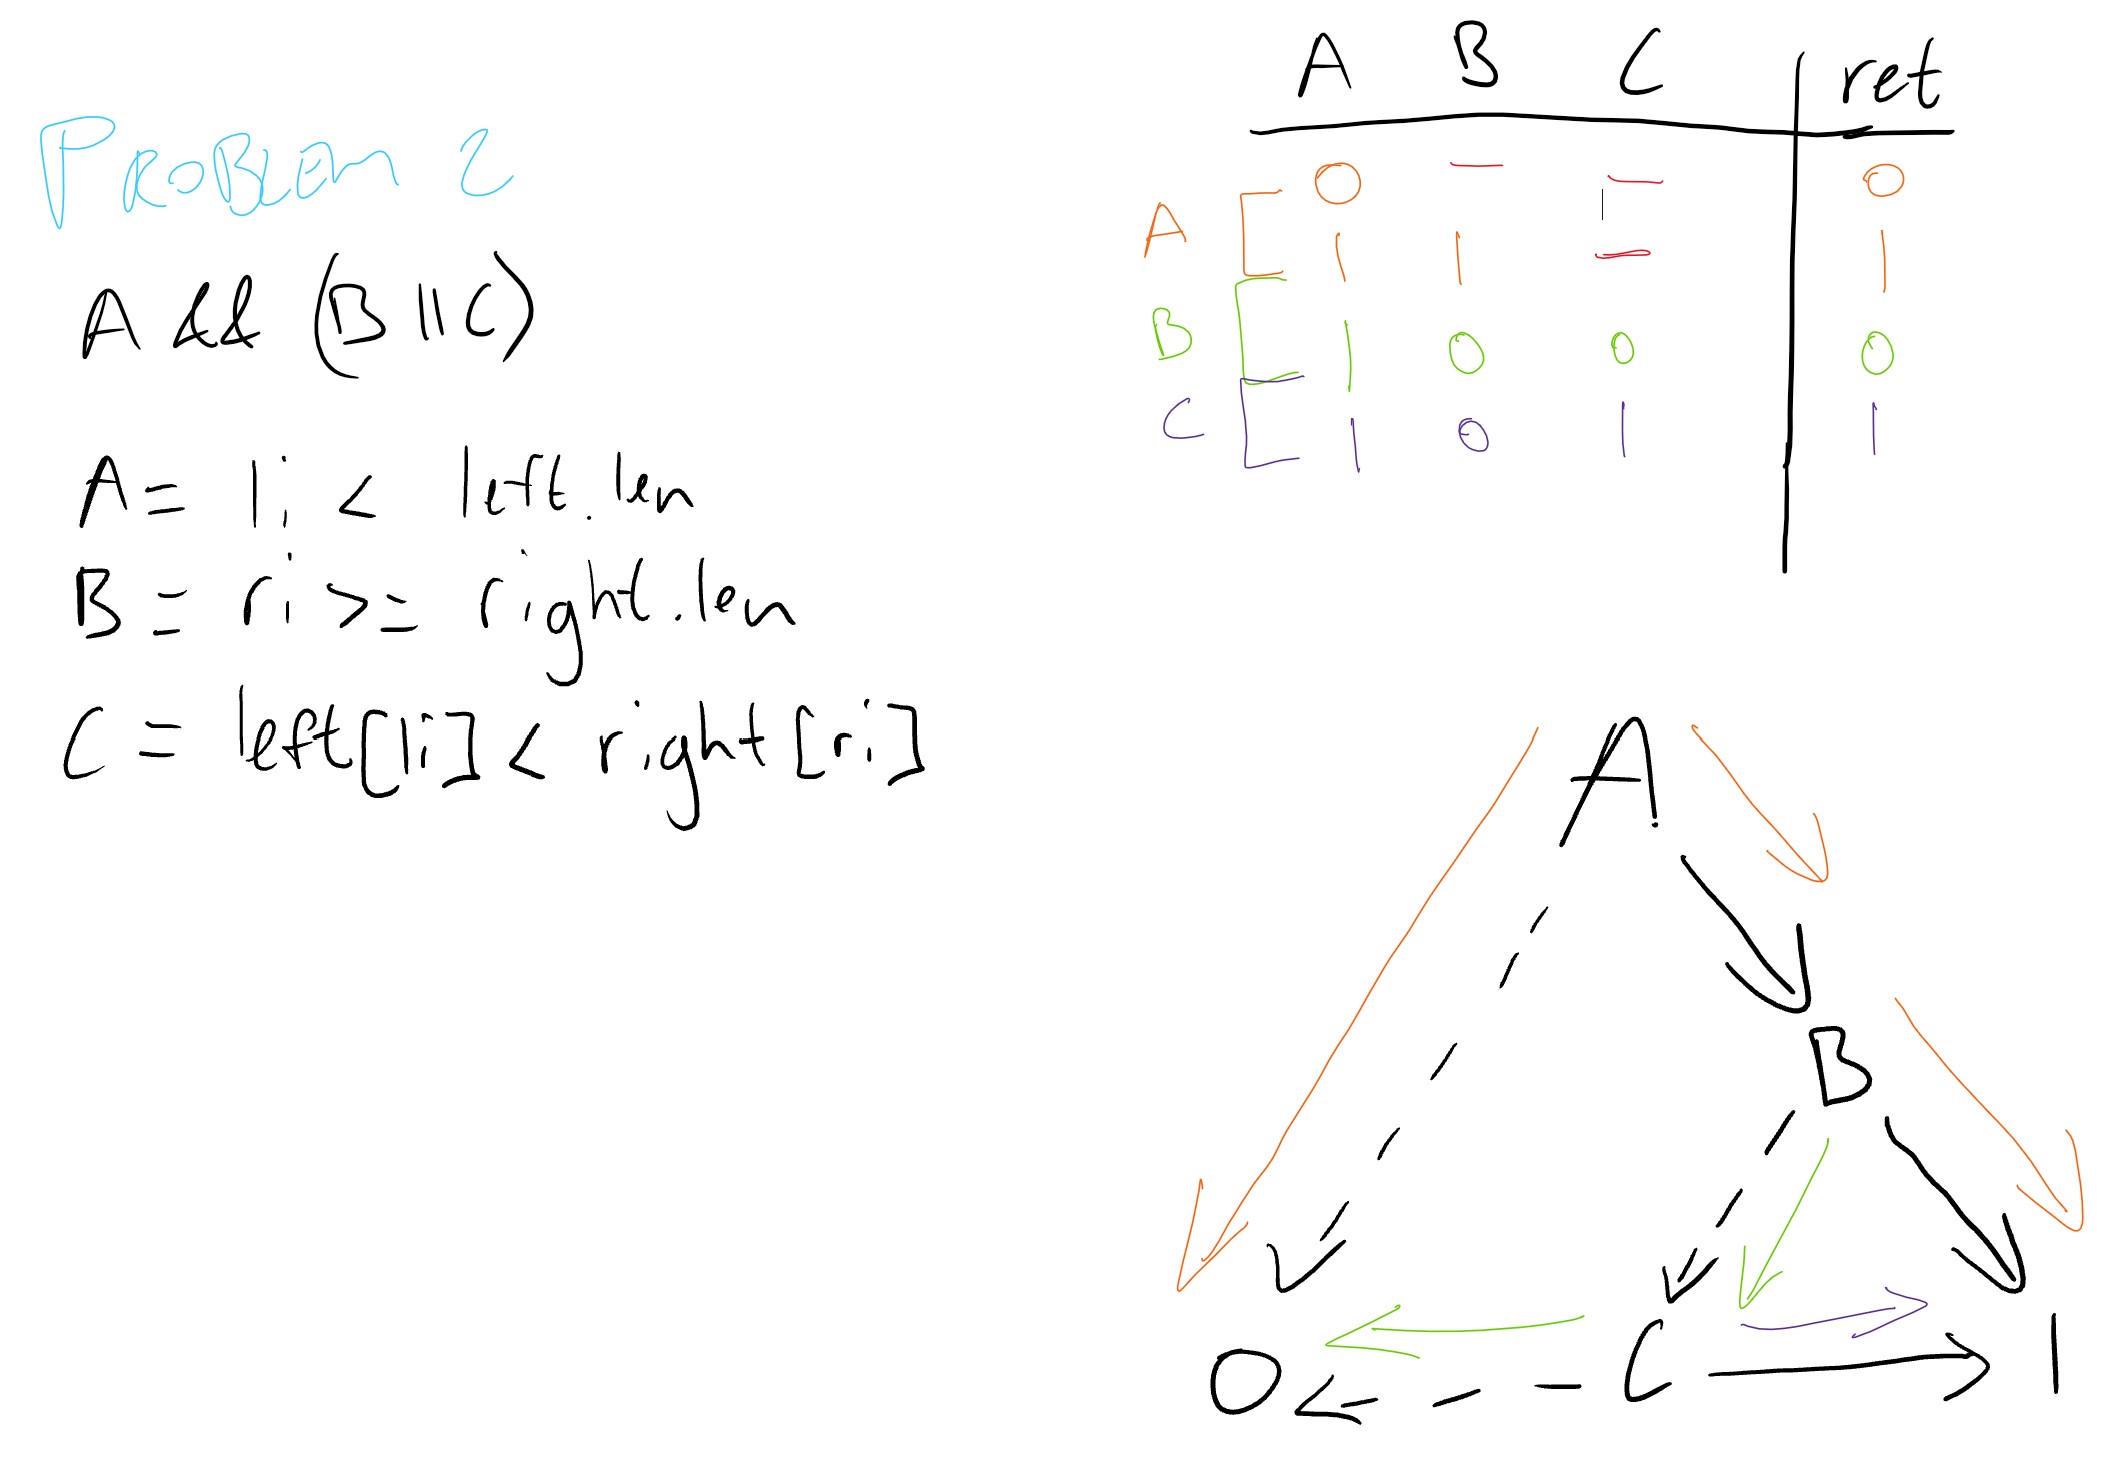 PROBLEM 2
A && (B || C)
A = li < left.len
B = ri >= right.len
C = left[li] < right[ri]
A B C ret
0 — — 0
A
1 1 — 1
B 1 0 0 0
C 1 0 1 1
A
B
0 C 1